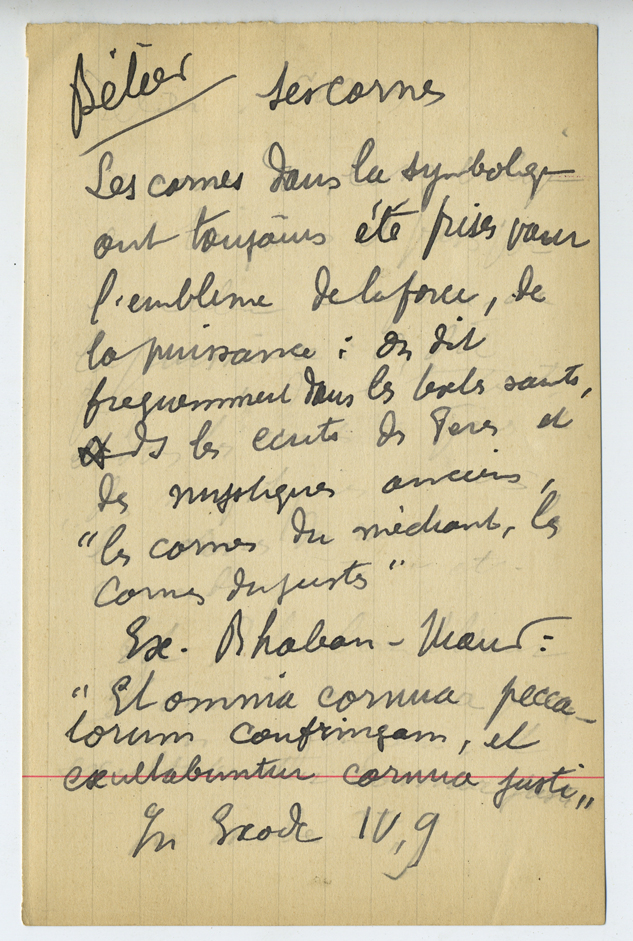 Bélier ses cornes
Les cornes dans la symboliq
ont toujours été prises pour
l'emblème de la force, de
la puissance : on dit
frequemment dans les textes saints,
ds les ecrits des Peres et
des mystiques anciens,
"les cornes du méchant, les
cornes du juste"
Ex. Rhaban-Maur :
"Et omnia cornua pecca-
torum confringam, et
exultabuntur cornua justi"
In Exode IV,9